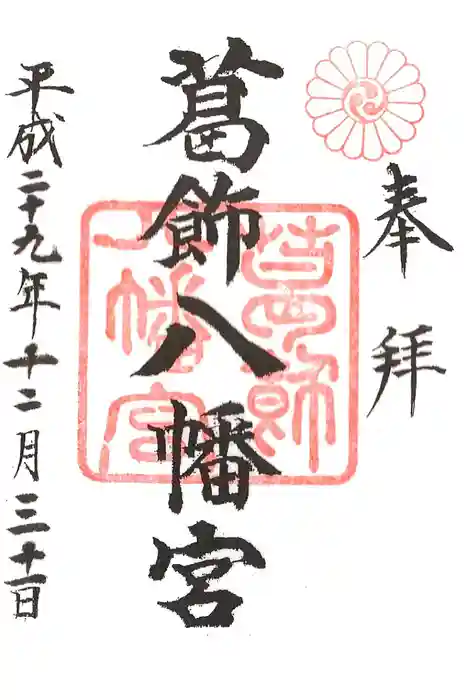 奉拝
葛飾八幡宮
葛飾八幡宮
平成二十九年十二月三十一日